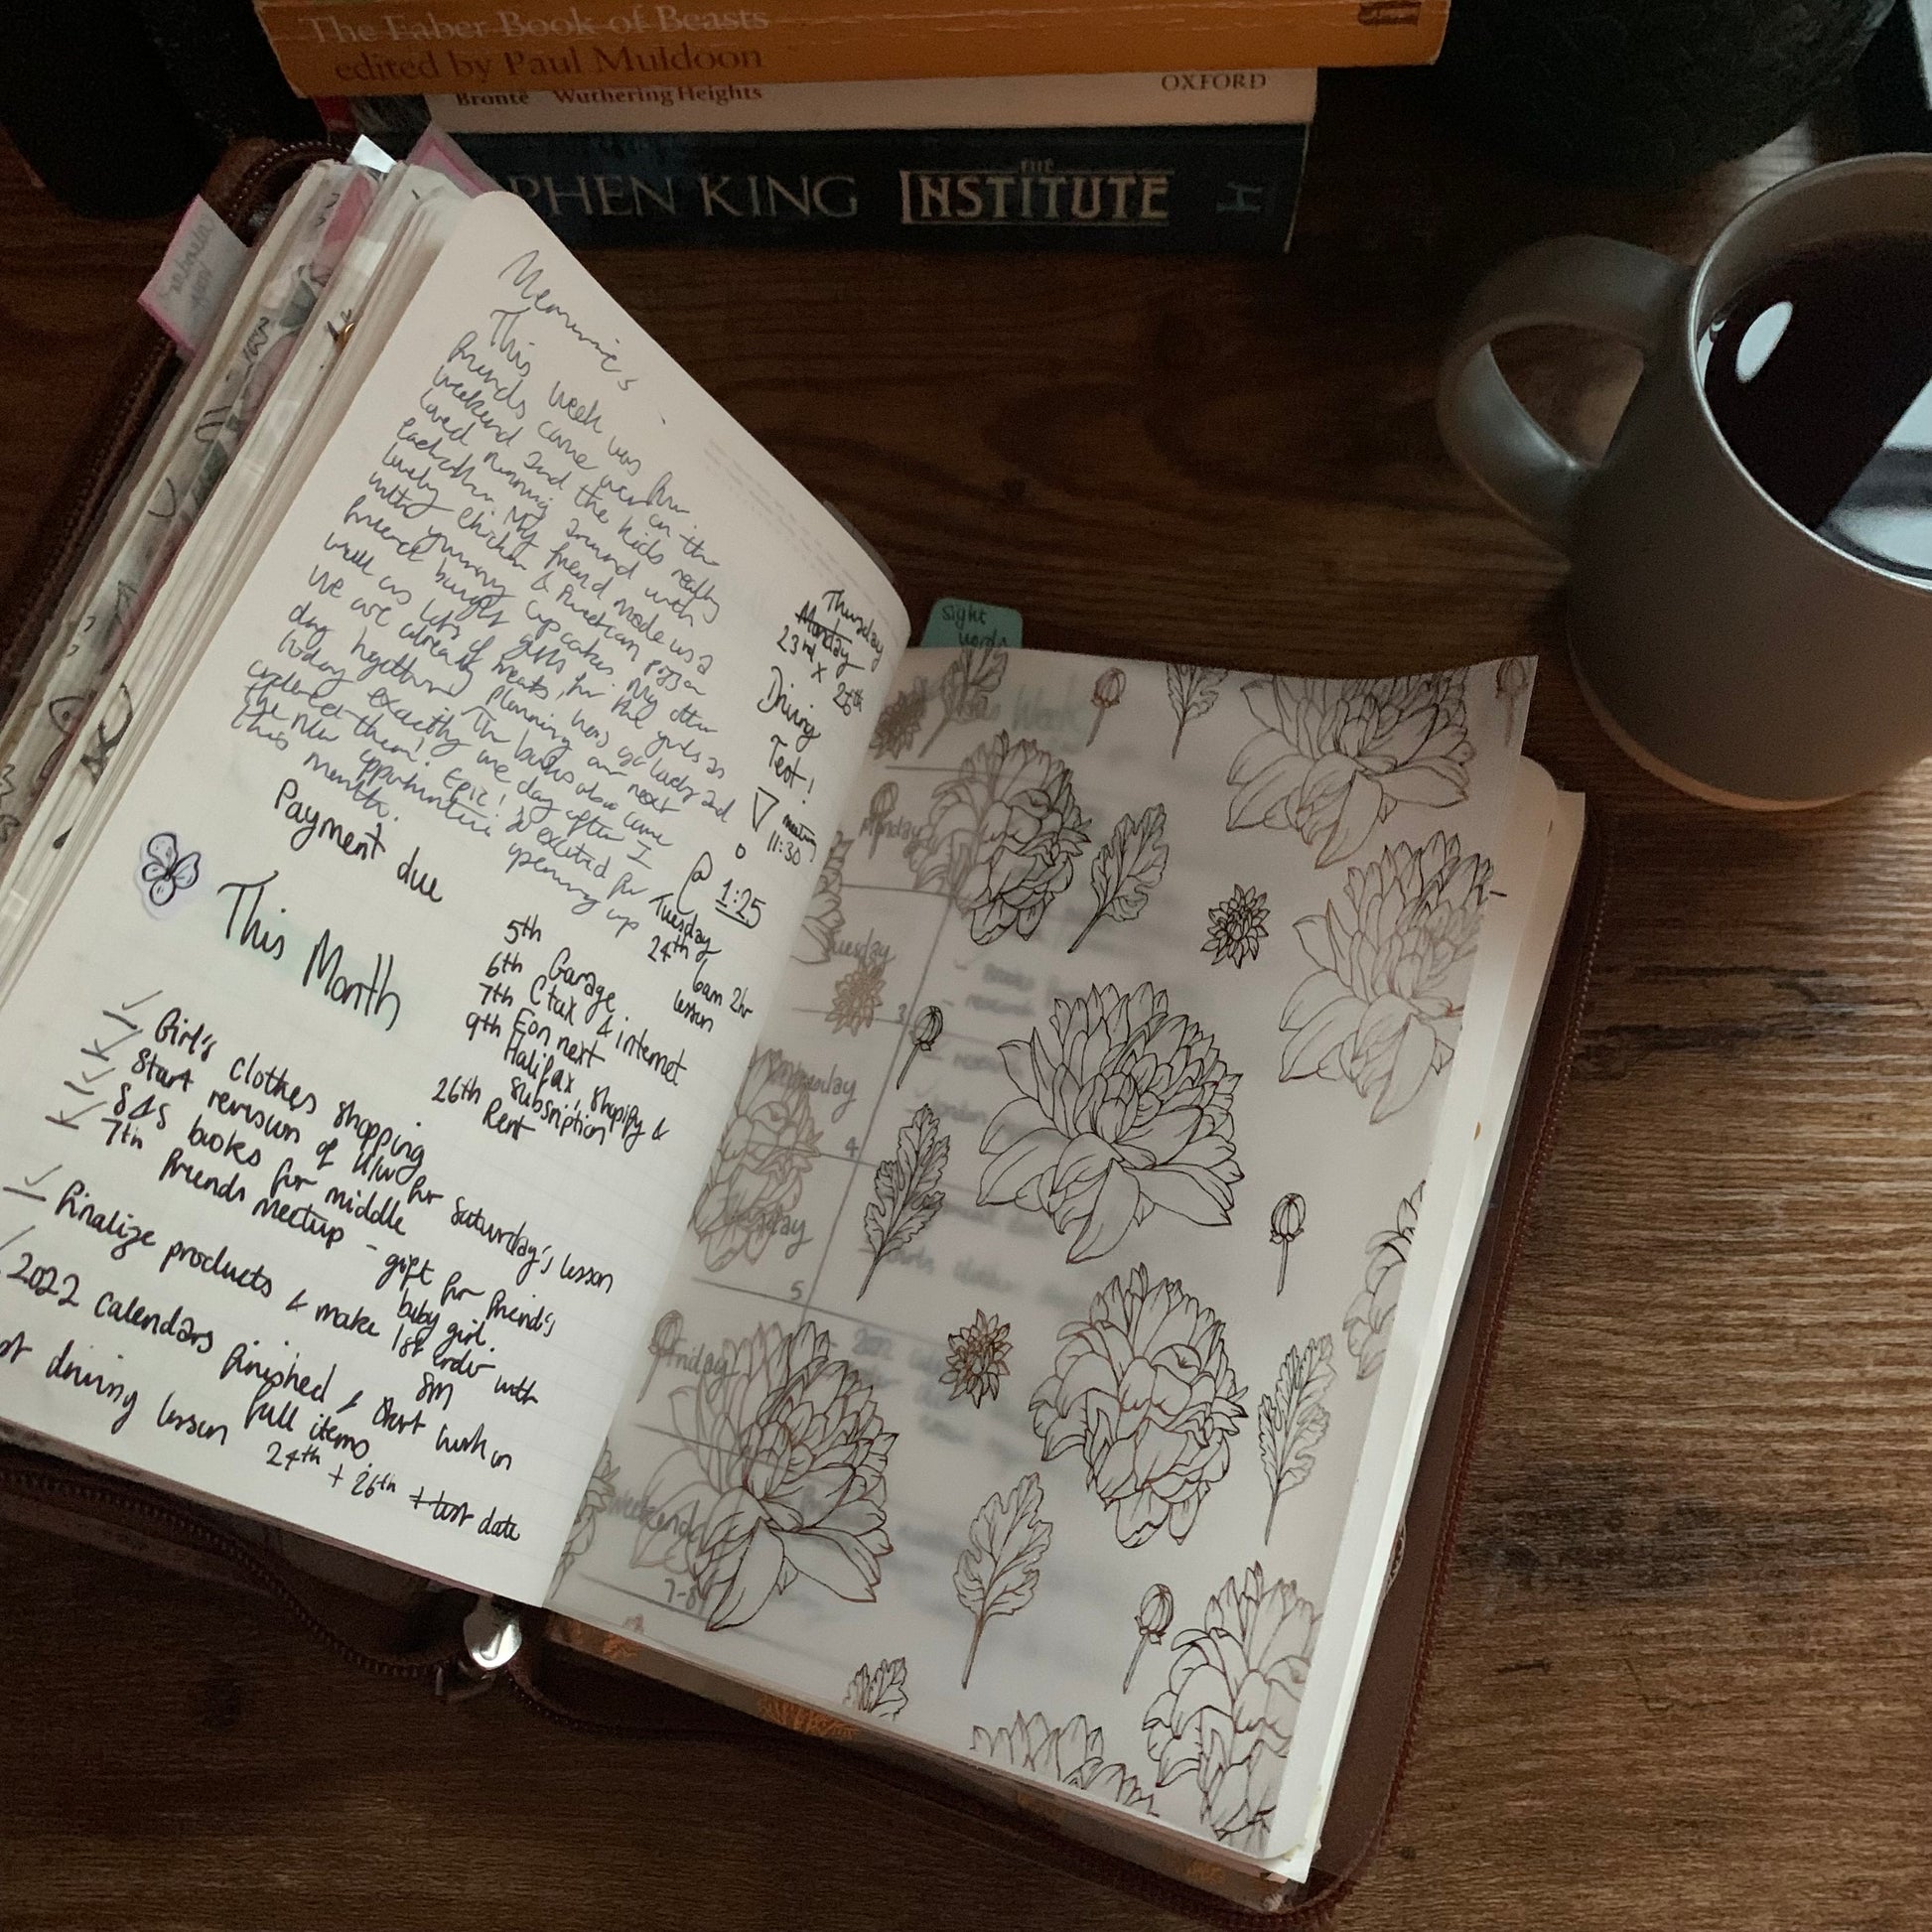 The Faber Book of Beasts
edited by Paul Muldoon
Brontë Wuthering Heights OXFORD
PHEN KING THE INSTITUTE H
Memories
This week was fun
friends came over on the
weekend and the kids really
loved running around with
each other. My friend made us a
lovely chicken & American pizza
with yummy cupcakes. My other
friend bought gifts for the girls as
well as lots of treats,
We are already planning our next
day together!
today exactly one day after I
ordered them! Epic! So excited for
the new opportunities opening up
this month.
Thursday
Monday
23rd x 26th
Driving
Test!
meeting
11:30
@ 1:25
Tuesday
24th
6am 2hr
lesson
Payment due
5th Garage
6th Ctax & internet
7th Eon next
9th Halifax, Shopify &
subsription
26th Rent
This Month
Girl's clothes shopping
Start revision of U/w for Saturday's lesson
books for middle
7th friends meetup - gift for friend's
baby girl.
Finalize products & make 1st order with
SM
2022 Calendars finished & start work on
fall items.
driving lesson 24th + 26th + test date
sight
words
Week
Monday
Tuesday
3
Wednesday
4
Thursday
5
Friday
Weekend
7-8